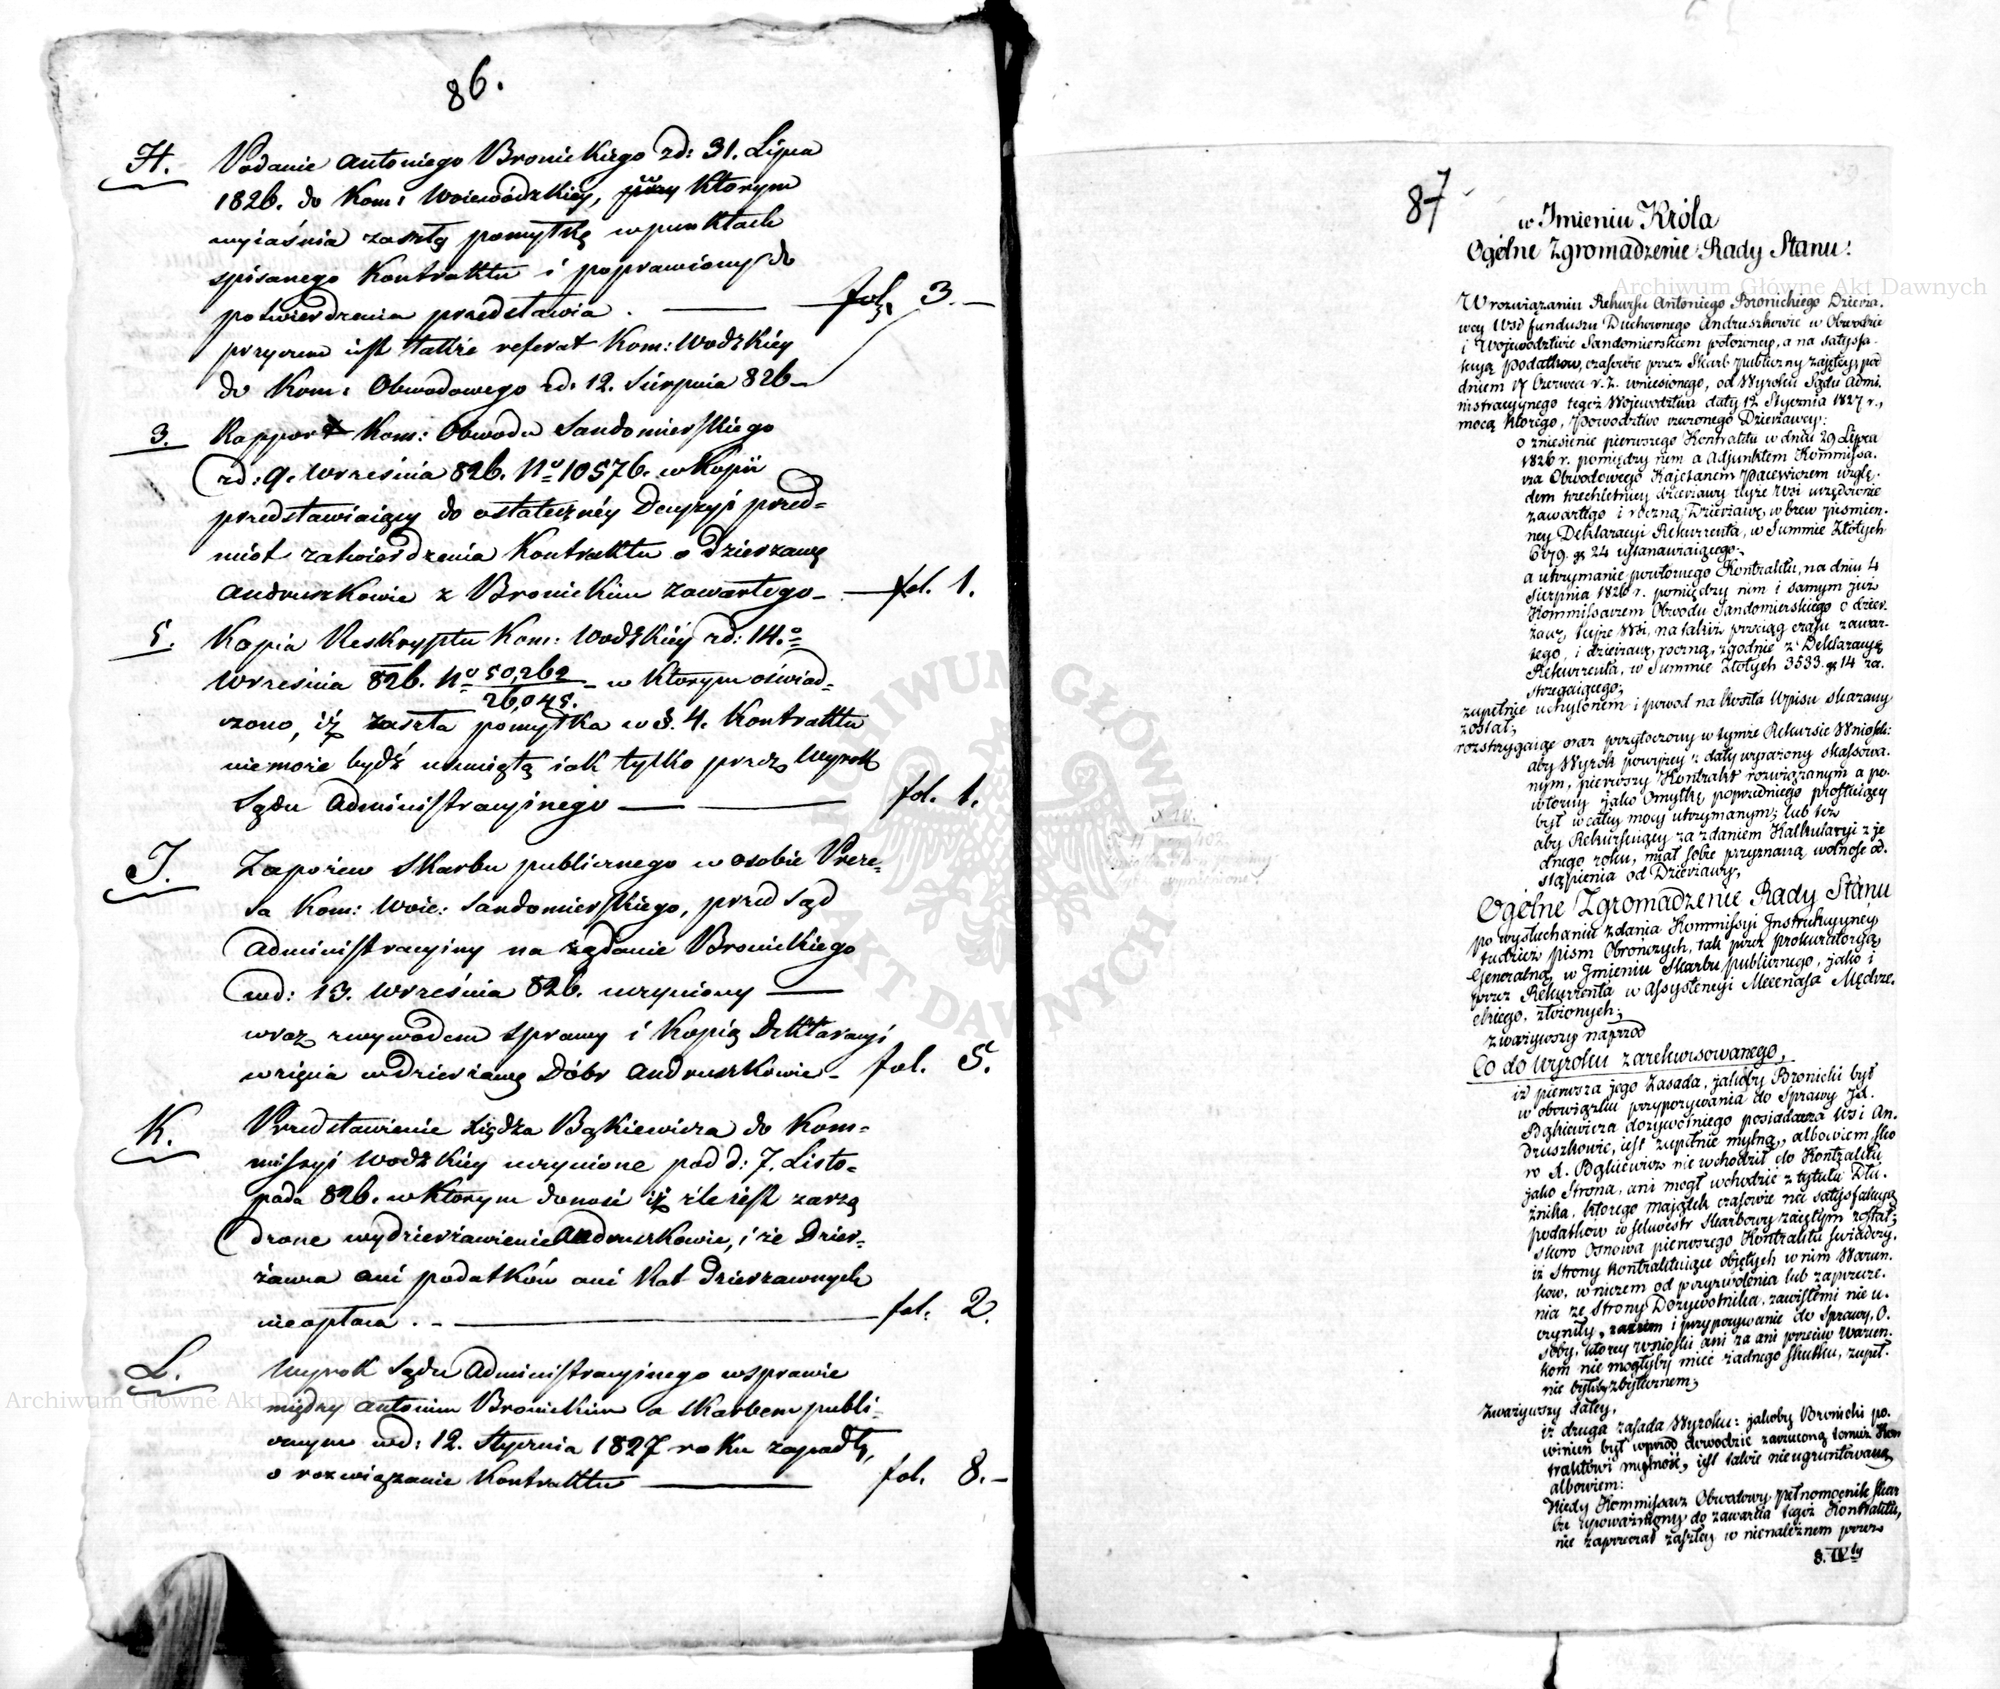 86.
H. Podanie Antoniego Bronickiego zd: 31. Lipca
1826. do Kom: Woiewódzkiey, przy którym
wyiaśnia zaszłą pomyłkę w punktach
spisanego Kontraktu i poprawiony do
potwierdzenia przedstawia. — fol. 3. —
przyczem iest także referat Kom: Wodzkiéy
do Kom: Obwodowego zd: 12. Sierpnia 826 —
3. Rapport Kom: Obwodu Sandomierskiego
zd: 9. Września 826. No 10576. w Kopii
przedstawiaiący do ostatecznéy Decyzyi przed=
miot zatwierdzenia Kontraktu o dzierzawę
Andruszkowic z Bronickim zawartego — fol. 1.
5. Kopia Reskryptu Kom: Wodzkiéy zd: 14.o
Września 826. No 50,262
26,045. w którym oświad=
czono, iż zaszła pomyłka w §. 4. Kontraktu
niemoże bydź usuniętą iak tylko przez Wyrok
Sądu Administracyinego — fol. 1.
J. Zapozew Skarbu publicznego w osobie Preze=
sa Kom: Woie: Sandomierskiego, przed Sąd
Administracyiny na żądanie Bronickiego
wd: 13. Września 826. uczyniony —
wraz z wywodem sprawy i Kopią Deklaracyi
wzięcia w dzierżawę Dóbr Andruszkowic — fol. 5.
K. Przedstawienie Xiędza Bąkiewicza do Kom=
missyi Wodzkiéy uczynione pod d: 7. Listo=
pada 826. w którym donosi iż źle iest zarzą
dzone wydzierżawienie Andruszkowic, i że Dzier=
żawca ani podatków ani Rat dzierzawnych
nieopłaca. — fol. 2.
L. Wyrok Sądu Administracyinego w sprawie
między Antonim Bronickim a Skarbem publi=
cznym wd: 12. Stycznia 1827 roku zapadły,
o rozwiązanie Kontraktu — fol. 8. —
87
w Imieniu Króla
Ogólne Zgromadzenie Rady Stanu!
W rozwiązaniu Rekursu Antoniego Bronickiego Dzierza.
wcy Wsi funduszu Duchownego Andruszkowic w Obwodzie
i Województwie Sandomierskiem położoney, a na satysfa.
kcyą Podatków, czasowie przez Skarb publiczny zajętey, pod
dniem 17 Czerwca r. z. wniesionego, od Wyroku Sądu Admi.
nistracyjnego tegoż Województwa daty 12 Stycznia 1827 r.,
mocą którego, Powództwo rzeczonego Dzierzawcy:
o zniesienie pierwszego Kontraktu w dniu 29 Lipca
1826 r. pomiędzy nim a Adjunktem Kommissa.
rza Obwodowego Kajetanem Pacewiczem wzglę.
dem trechletniey dzierzawy tejże Wsi urzędownie
zawartego i roczną Dzierzawę, w brew piśmien.
ney Deklaracyi Rekurrenta, w Summie Złotych
6179. gr 24 ustanawiaiącego;
a utrzymanie powtórnego Kontraktu, na dniu 4
Sierpnia 1826 r. pomiędzy nim i samym już
Kommissarzem Obwodu Sandomierskiego o dzier.
zawę tejże Wsi, na takiż przeciąg czasu zawar.
tego, i dzierzawę roczną, zgodnie z Deklaracyą
Rekurrenta, w Summie Złotych 3533. gr 14 za.
strzegaiącego;
zupełnie uchylonem i powód na koszta Wpisu skazany
został;
rozstrzygaiąc oraz przytoczony w tymże Rekursie Wniosek:
aby Wyrok powyżey z daty wyrażony skassowa.
nym, pierwszy Kontrakt rozwiązanym a po.
wtórny jako omyłkę poprzedniego prostuiący
był w całey mocy utrzymanym; lub też
aby Rekursuiący za zdaniem Kalkulacyi z je
dnego roku, miał sobie przyznaną wolność od.
stąpienia od Dzierzawy,
Ogólne Zgromadzenie Rady Stanu
po wysłuchaniu zdania Kommissyi Instrukcyiney
tudzież pism Obrończych, tak przez Prokuratoryą
Generalną w Imieniu Skarbu publicznego, jako i
przez Rekurrenta w Assystencyi Mecenasa Mędrze.
ckiego, złożonych;
zważywszy naprzód
Co do wyroku zarekursowanego,
iż pierwsza jego zasada, jakoby Bronicki był
w obowiązku przypozywania do Sprawy Jx.
Bąkiewicza dożywotniego posiadacza Wsi An.
druszkowic, iest zupełnie mylną, albowiem sko
ro X. Bąkiewicz nie wchodził do Kontraktu
jako Strona, ani mógł wchodzić z tytułu Dłu.
żnika, którego majątek czasowie na satysfakcyą
podatków w sekwestr Skarbowy zaiętym został;
skoro Osnowa pierwszego Kontraktu świadczy,
iż Strony kontraktuiące obiętych w nim Warun.
ków, w niczem od przyzwolenia lub zaprzecze.
nia ze Strony Dożywotnika, zawisłemi nie u.
czyniły, zatem i przypozywanie do Sprawy, O.
soby, którey wnioski ani za ani przeciw Warun.
kom nie mogłyby mieć żadnego skutku, zupeł.
nie byłoby zbytecznem;
Zważywszy daley,
iż druga zasada Wyroku: jakoby Bronicki po.
winien był wprzód dowodzić zarzuconą tomuż Kon
traktowi mylność, iest także nieugruntowaną
albowiem:
kiedy Kommissarz Obwodowy, Pełnomocnik Skar
bu upoważniony do zawarcia tegoż Kontraktu,
nie zaprzeczał zaszłey w nienależnem przez